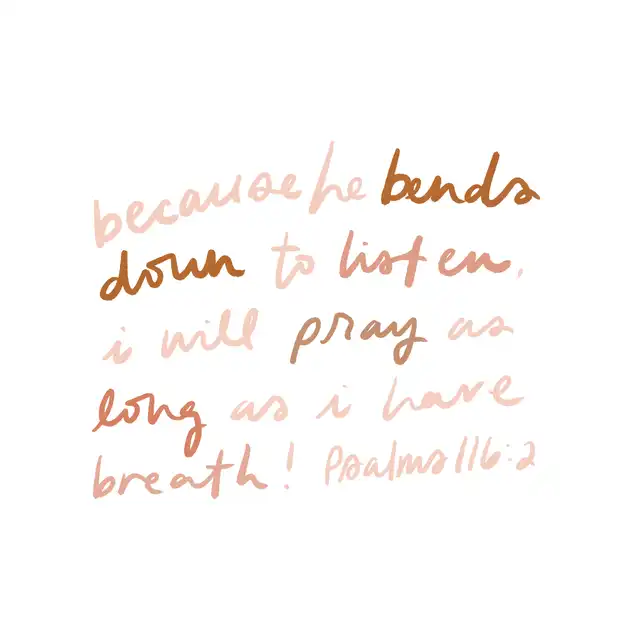 because he bends
down to listen,
i will pray as
long as i have
breath! Psalms 116:2